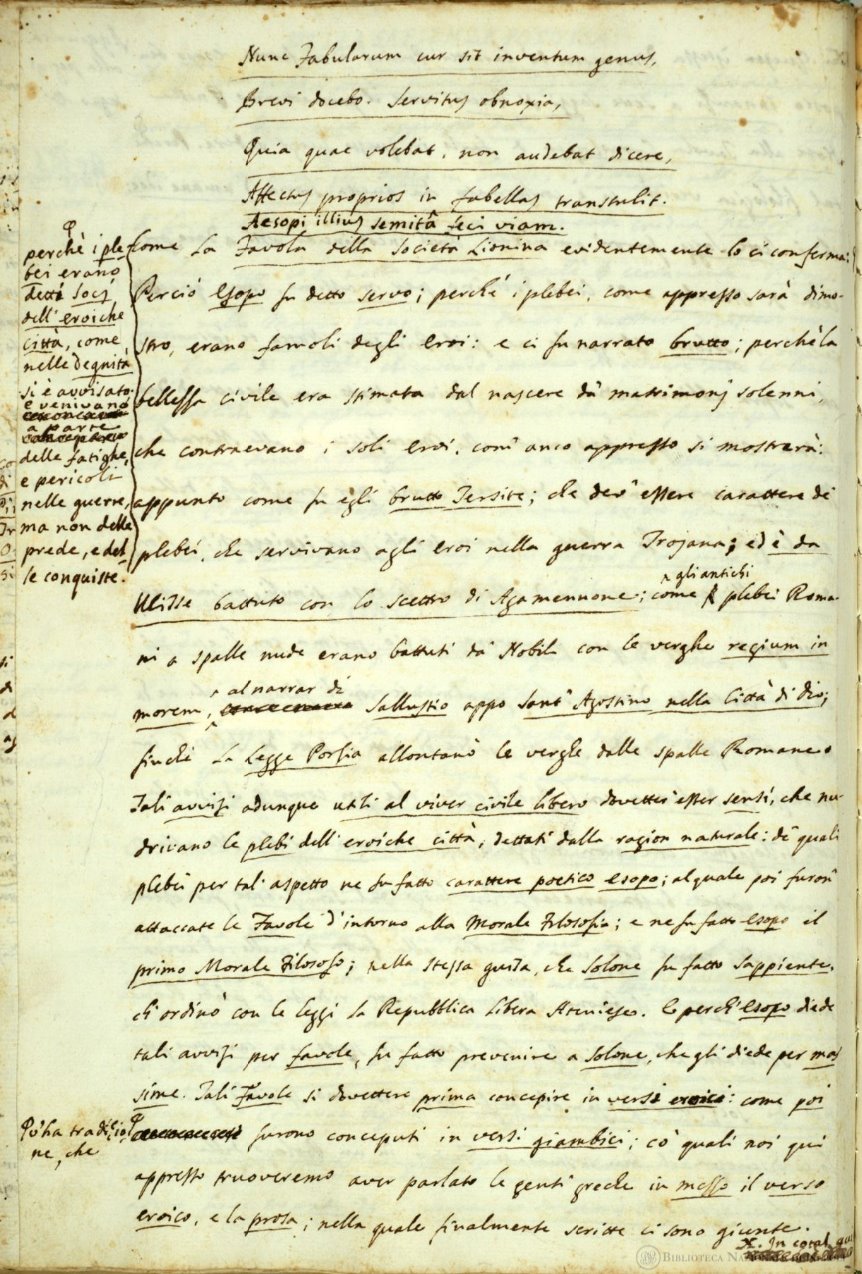 Nunc Fabularum cur sit inventum genus,
Brevi docebo. Servitus obnoxia,
Quia quae volebat, non audebat dicere,
Affectus proprios in fabellas transtulit.
Aesopi illius semitâ feci viam.
come la Favola della Società Lionina evidentemente lo ci conferma:
perchè i ple-
bei erano
detti Socj
dell'eroiche
città, come,
nelle Degnità
si è avvisato
e venivano
a parte
delle fatighe,
e pericoli
nelle guerre,
ma non delle
prede, e del-
le conquiste.
Perciò Esopo fu detto servo; perchè i plebei, come appresso sarà dimo-
stro, erano famoli degli Eroi: e ci fu narrato brutto; perchè la
bellezza civile era stimata dal nascere da' matrimonj solenni,
che contraevano i soli Eroi, com' anco appresso si mostrerà:
appunto come fu egli brutto Tersite; che dev' essere carattere de'
plebei, che servivano agli Eroi nella guerra Trojana; ed è da
Ulisse battuto con lo scettro di Agamennone; come gli antichi plebei Roma-
ni a spalle nude erano battuti da' Nobili con le verghe regium in
morem, al narrar di Sallustio appo Sant' Agostino nella Città di dio;
finchè la Legge Porzia allontanò le verghe dalle spalle Romane.
Tali avvisi adunque utili al viver civile libero dovetter' esser sensi, che nu-
drivano le plebi dell' eroiche città, dettati dalla ragion naturale: de' quali
plebei per tal' aspetto ne fu fatto carattere poetico Esopo; al quale poi furon'
attaccate le Favole d'intorno alla Morale Filosofia; e ne fu fatto Esopo il
primo Morale Filosofo; nella stessa guisa, che Solone fu fatto sappiente,
ch' ordinò con le leggi la Repubblica Libera Ateniese. E perch' Esopo diede
tali avvisi per favole, fu fatto prevenire a Solone, che gli diede per mas-
sime. Tali Favole si dovettero prima concepire in versi eroici: come poi
v'ha tradizio-
ne, che
furono conceputi in versi giambici; co' quali noi qui
appresso truoveremo aver parlato le genti greche in mezzo il verso
eroico, e la prosa; nella quale finalmente scritte ci sono giunte.
In cotal gui